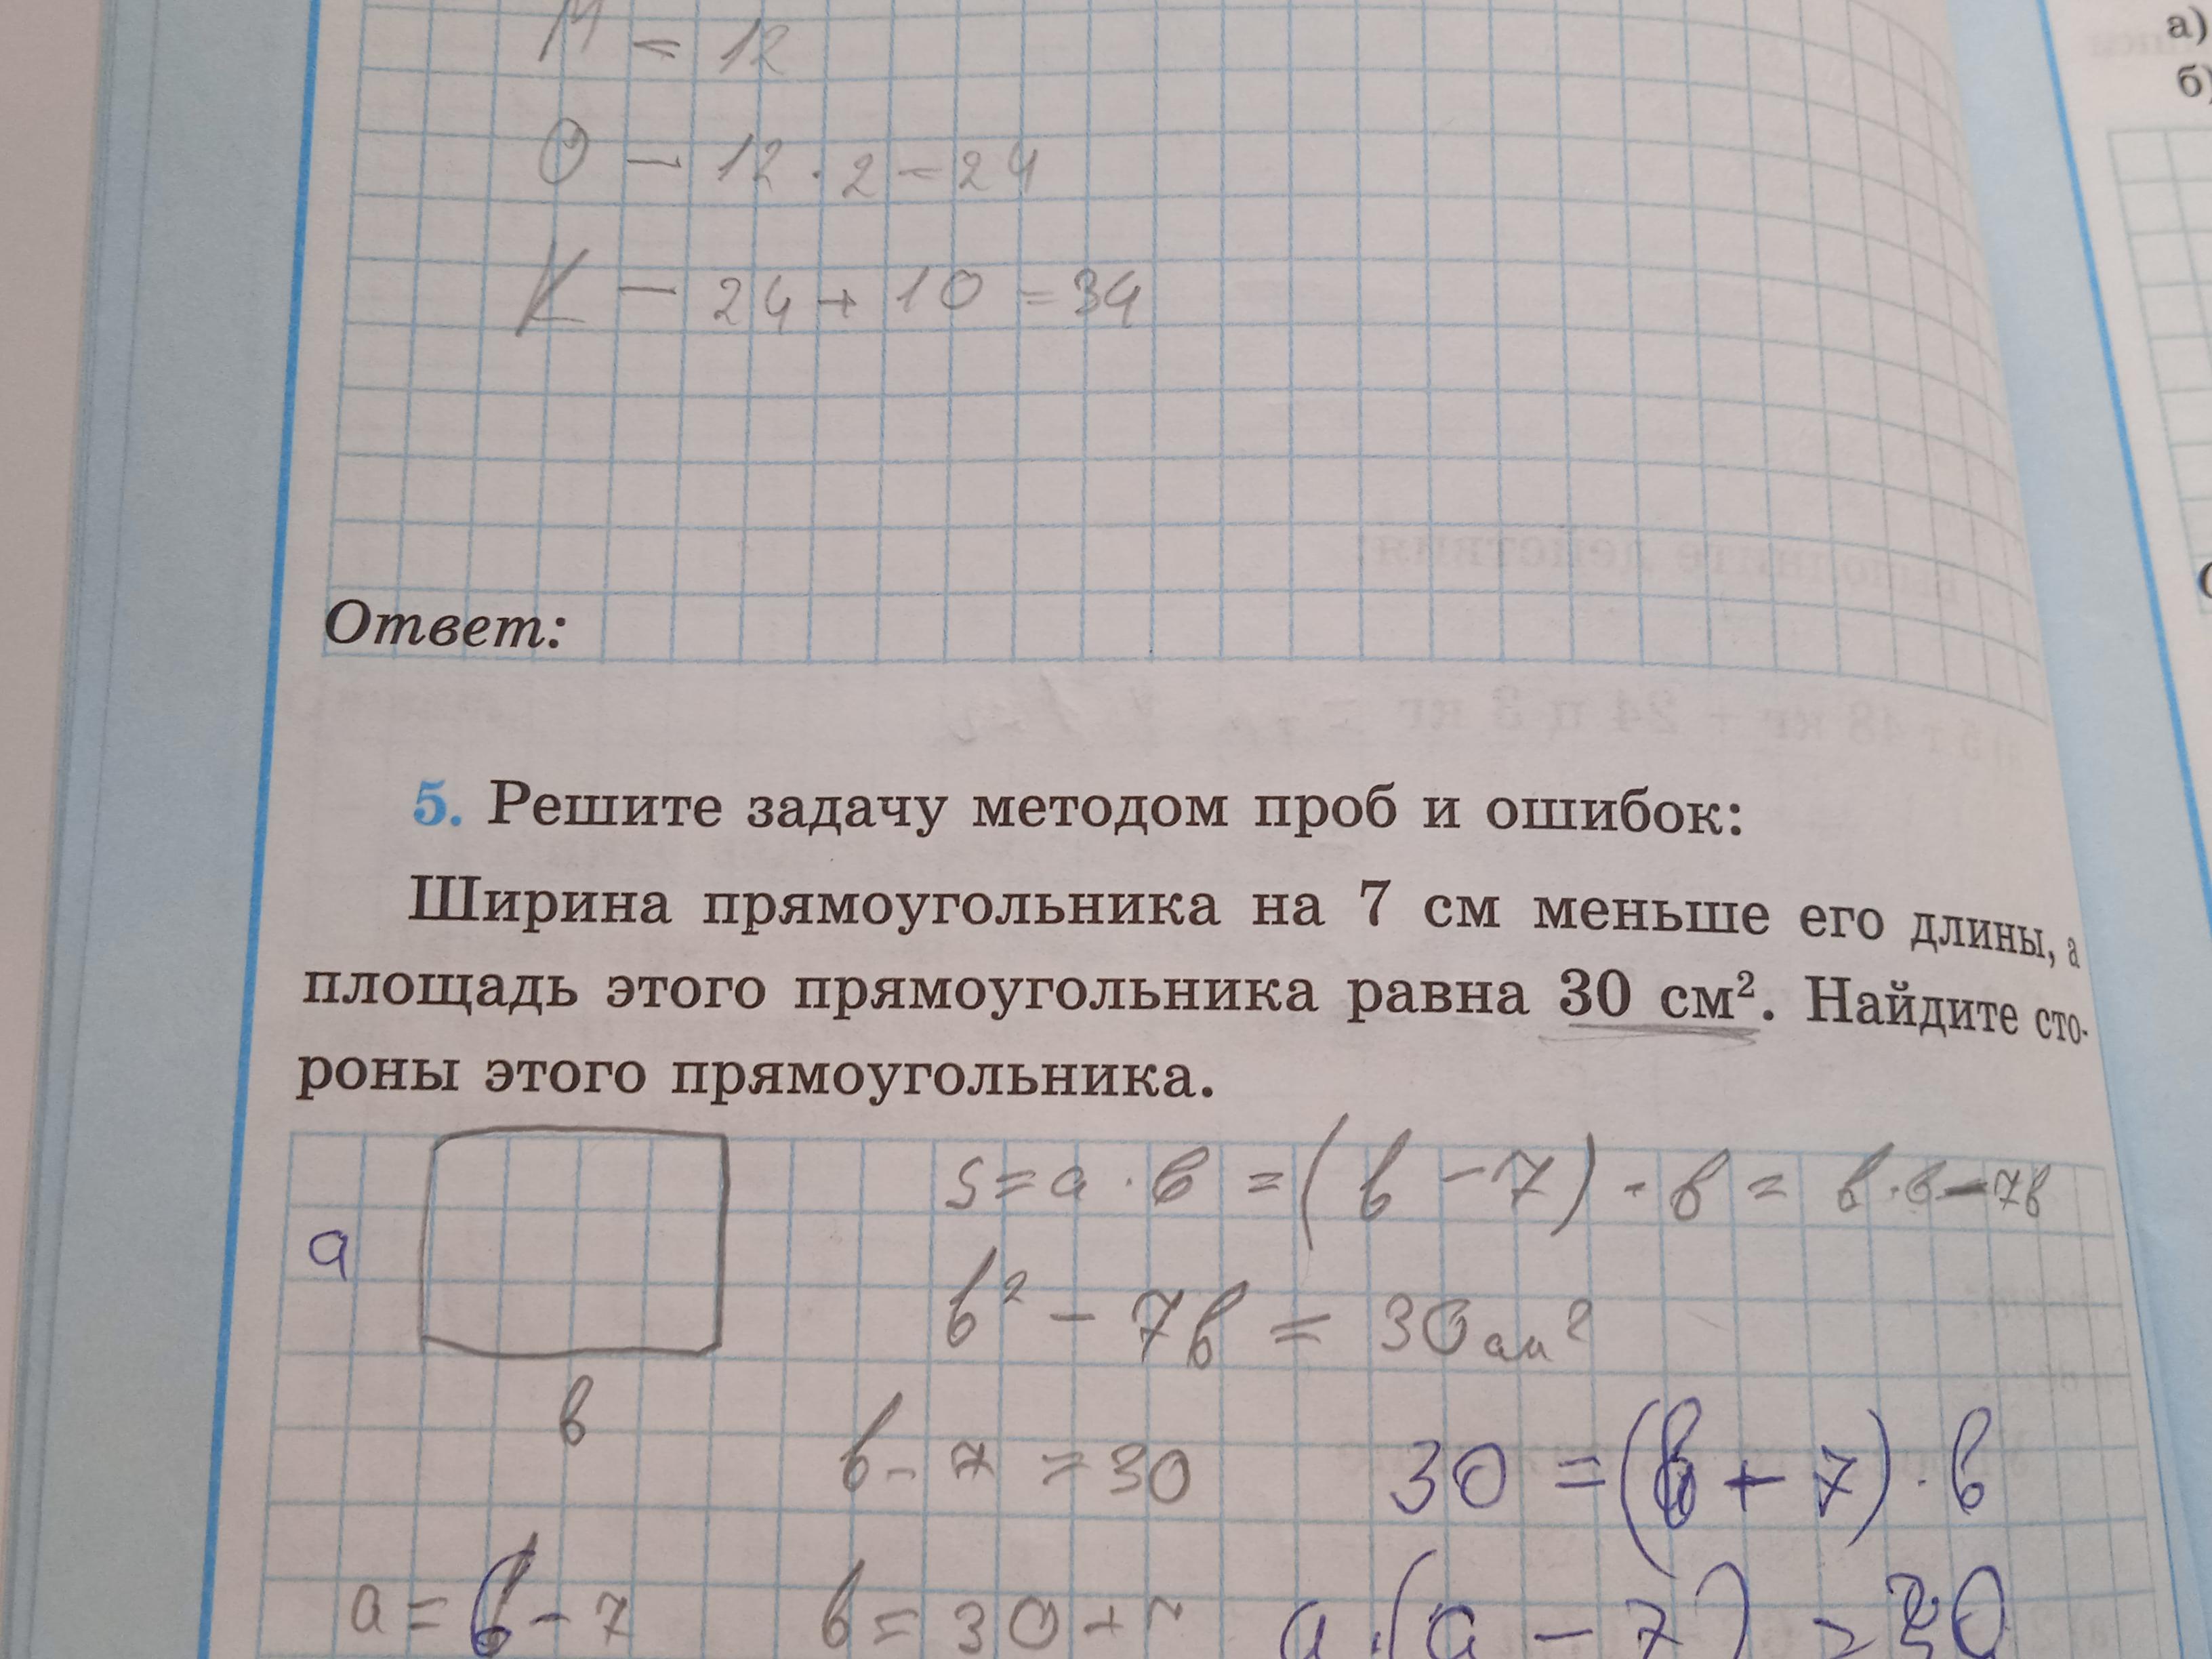 М = 12
а)
б)
О — 12 · 2 = 24
К — 24 + 10 = 34
Ответ:
5. Решите задачу методом проб и ошибок:
Ширина прямоугольника на 7 см меньше его длины, а
площадь этого прямоугольника равна 30 см². Найдите сто-
роны этого прямоугольника.
S = a · в = (в - 7) · в = в · в - 7в
а
в² - 7в = 30 см²
в
в - 7 = 30
30 = (в + 7) · в
а = в - 7
в = 30 + 7
а · (а - 7) = 30